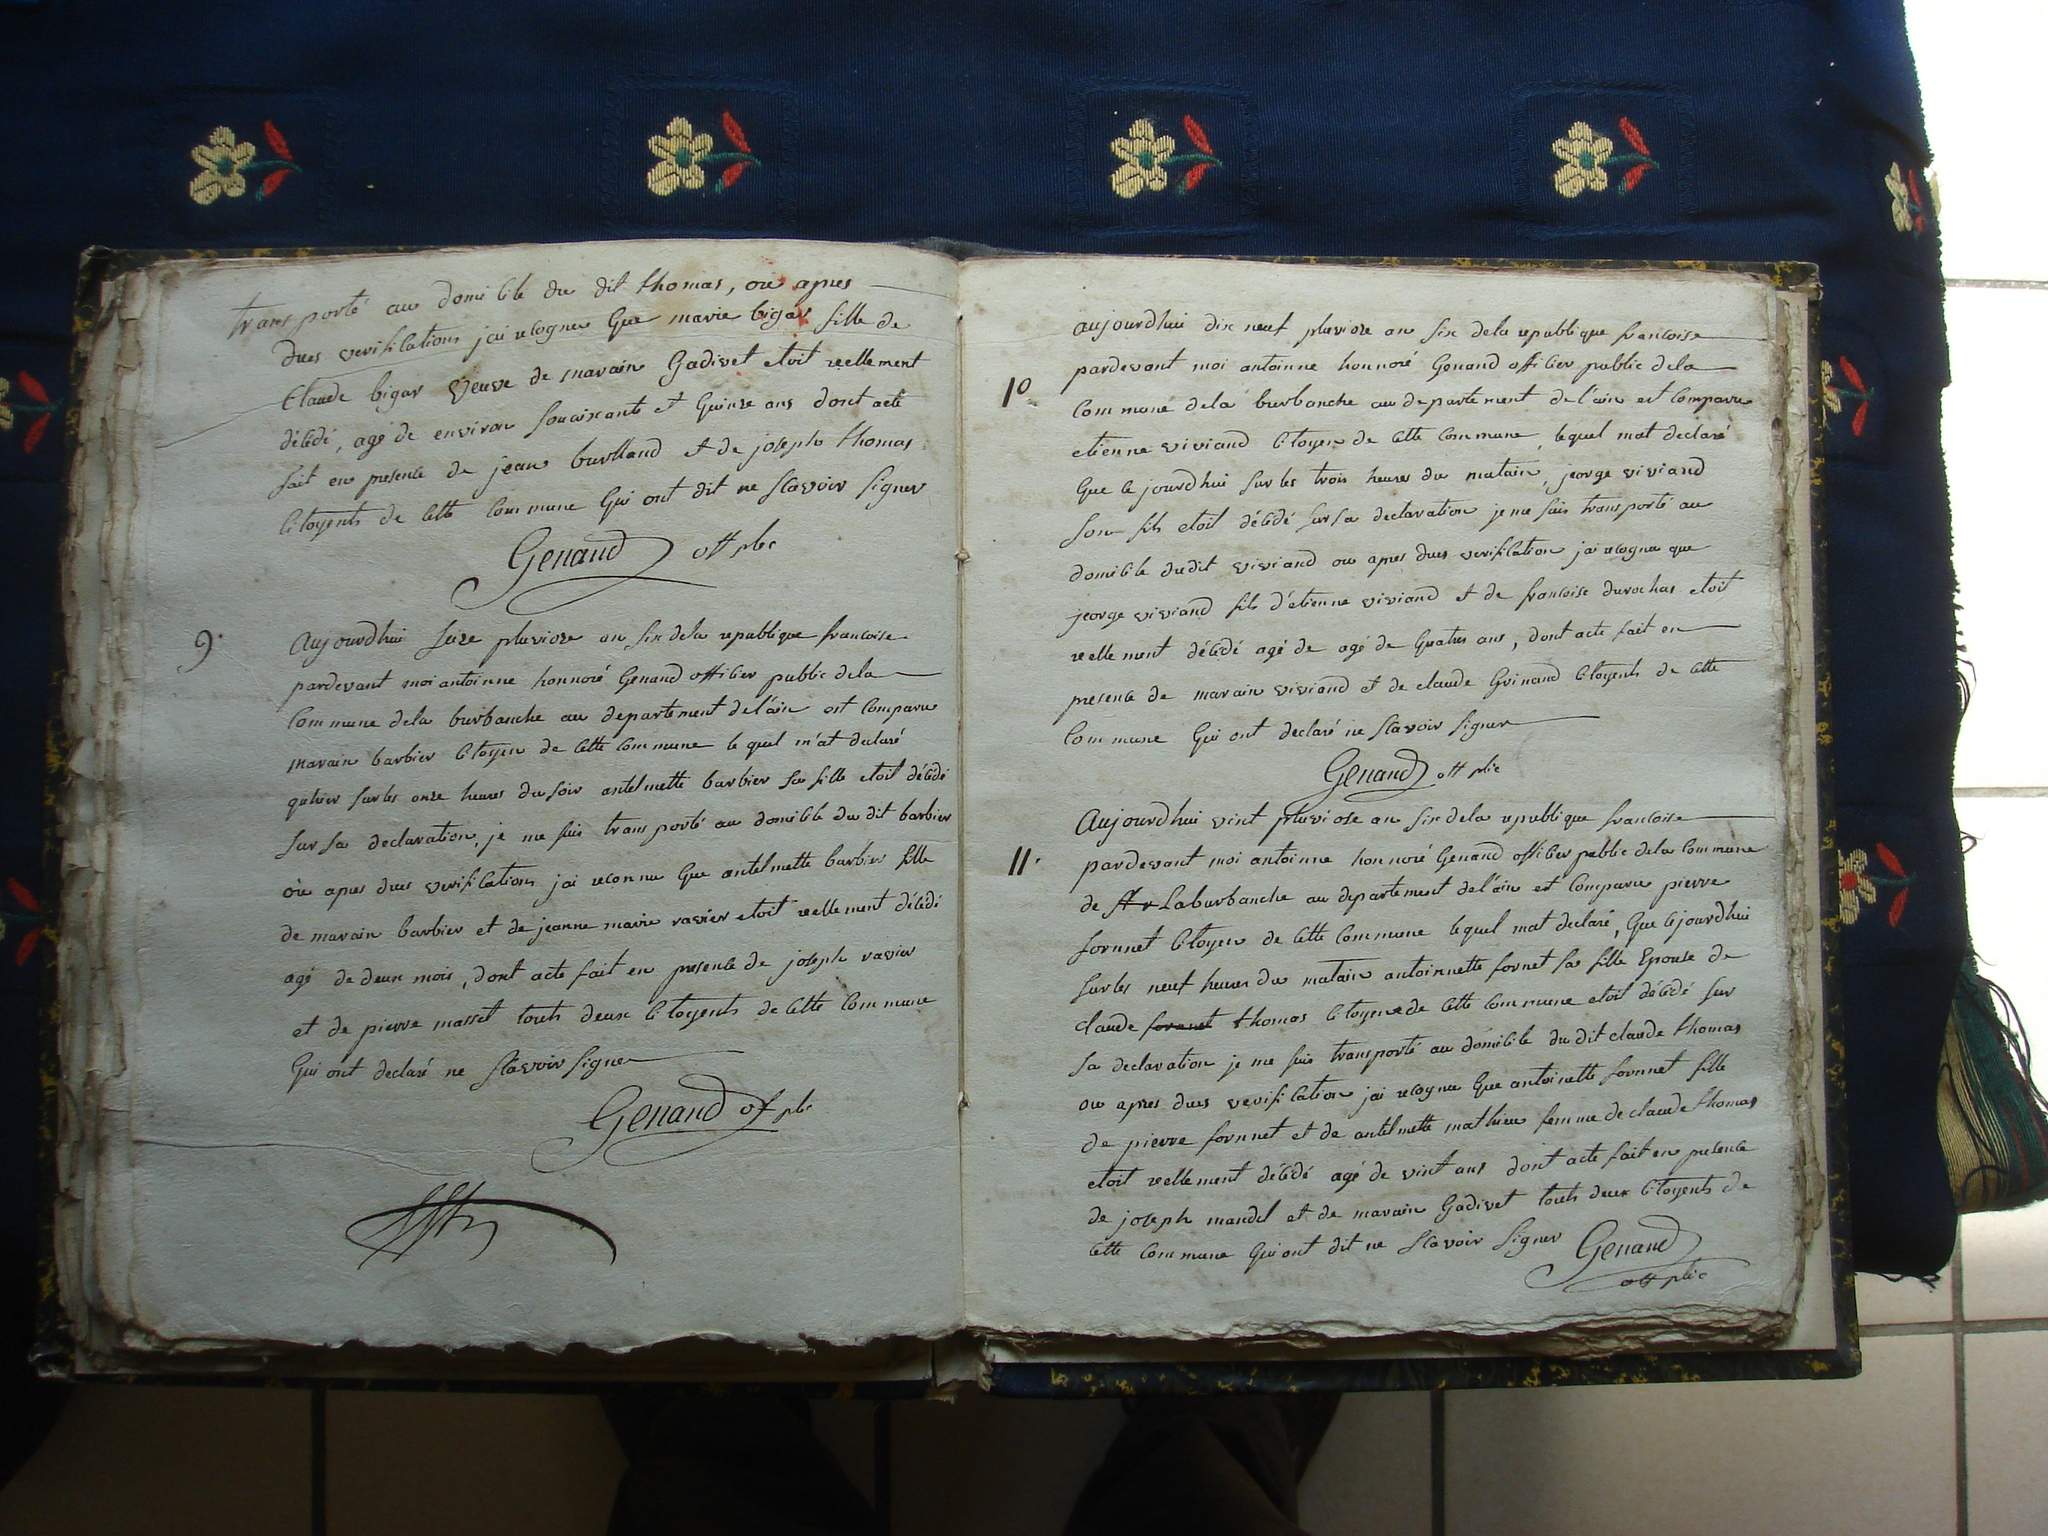 transporté au domicile du dit thomas, ou apres
dues verifications jai recognu que marie bigar fille de
Claude bigar veuve de marain Gadivet etoit reellement
décédé, agé de environ souaixante et quinze ans dont acte
fait en presence de jean burlland et de joseph thomas
citoyents de cette commune qui ont dit ne scavoir signer
Genaud off plic
9.
Aujourdhui seize pluviose an six dela republique francoise
pardevant moi antoinne honnoré Genaud officier public dela
commune dela burbanche au departement de l'ain est comparu
marain barbier citoyen de cette commune le quel m'at declaré
qu'hier sur les onze heures du soir antelmette barbier sa fille etoit décédé
sur sa declaration, je me suis transporté au domicile du dit barbier
où apres dues verifications jai reconnu que antelmette barbier fille
de marain barbier et de jeanne marie ravier etoit reellement décédé
agé de deux mois, dont acte fait en presence de joseph ravier
et de pierre masset touts deux citoyents de cette commune
Qui ont declaré ne scavoir signer
Genaud of plic
aujourdhui dix neuf pluviose an six dela republique francoise
10.
pardevant moi antoinne honnoré Genaud officier public dela
commune dela burbanche au departement de l'ain est comparu
etienne viviand citoyen de cette commune, lequel mat declaré
Que ce jourdhui sur les trois heures du matain, jeorge viviand
son fils etoit décédé sur sa declaration je me suis transporté au
domicile dudit viviand ou apres dues verification jai recognu que
jeorge viviand fils d'etienne viviand et de francoise durochat etoit
reellement décédé agé de agé de quatres ans, dont acte fait en
presence de marain viviand et de claude Guinand citoyents de cette
commune Qui ont declaré ne scavoir signer
Genaud off plic
Aujourdhui vint pluviose an six dela republique francoise
11.
pardevant moi antoinne honnoré Genaud officier public dela commune
de Laburbanche au departement de l'ain est comparu pierre
fornnet citoyen de cette commune lequel mat declaré, Que cejourdhui
sur les neuf heures du matain antoinnette fornet sa fille Epouse de
claude fornnet thomas citoyen de cette commune etoit décédé sur
sa declaration je me suis transporté au domicile du dit claude thomas
ou apres dues verification jai recognu que antoinette fornnet fille
de pierre fornnet et de antelmette mathieu femme de claude thomas
etoit reellement décédé agé de vint ans dont acte fait en presence
de joseph mandel et de marain Gadivet touts deux citoyents de
cette commune Qui ont dit ne scavoir signer Genaud
off plic